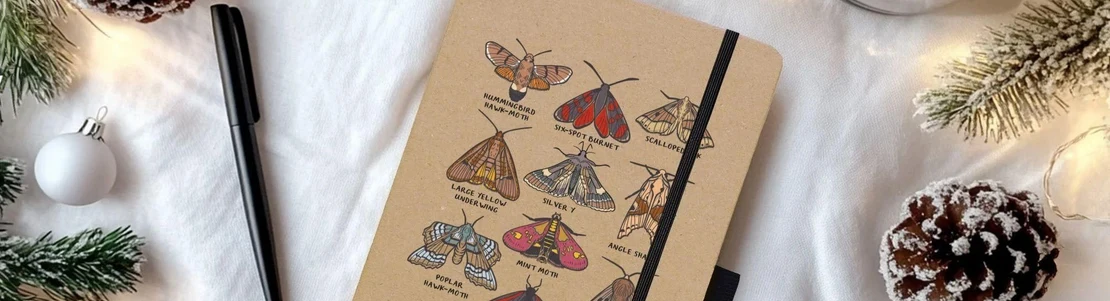 HUMMINGBIRD
HAWK-MOTH
SIX-SPOT BURNET
SCALLOPED
LARGE YELLOW
UNDERWING
SILVER Y
ANGLE SHA
POPLAR
HAWK-MOTH
MINT MOTH